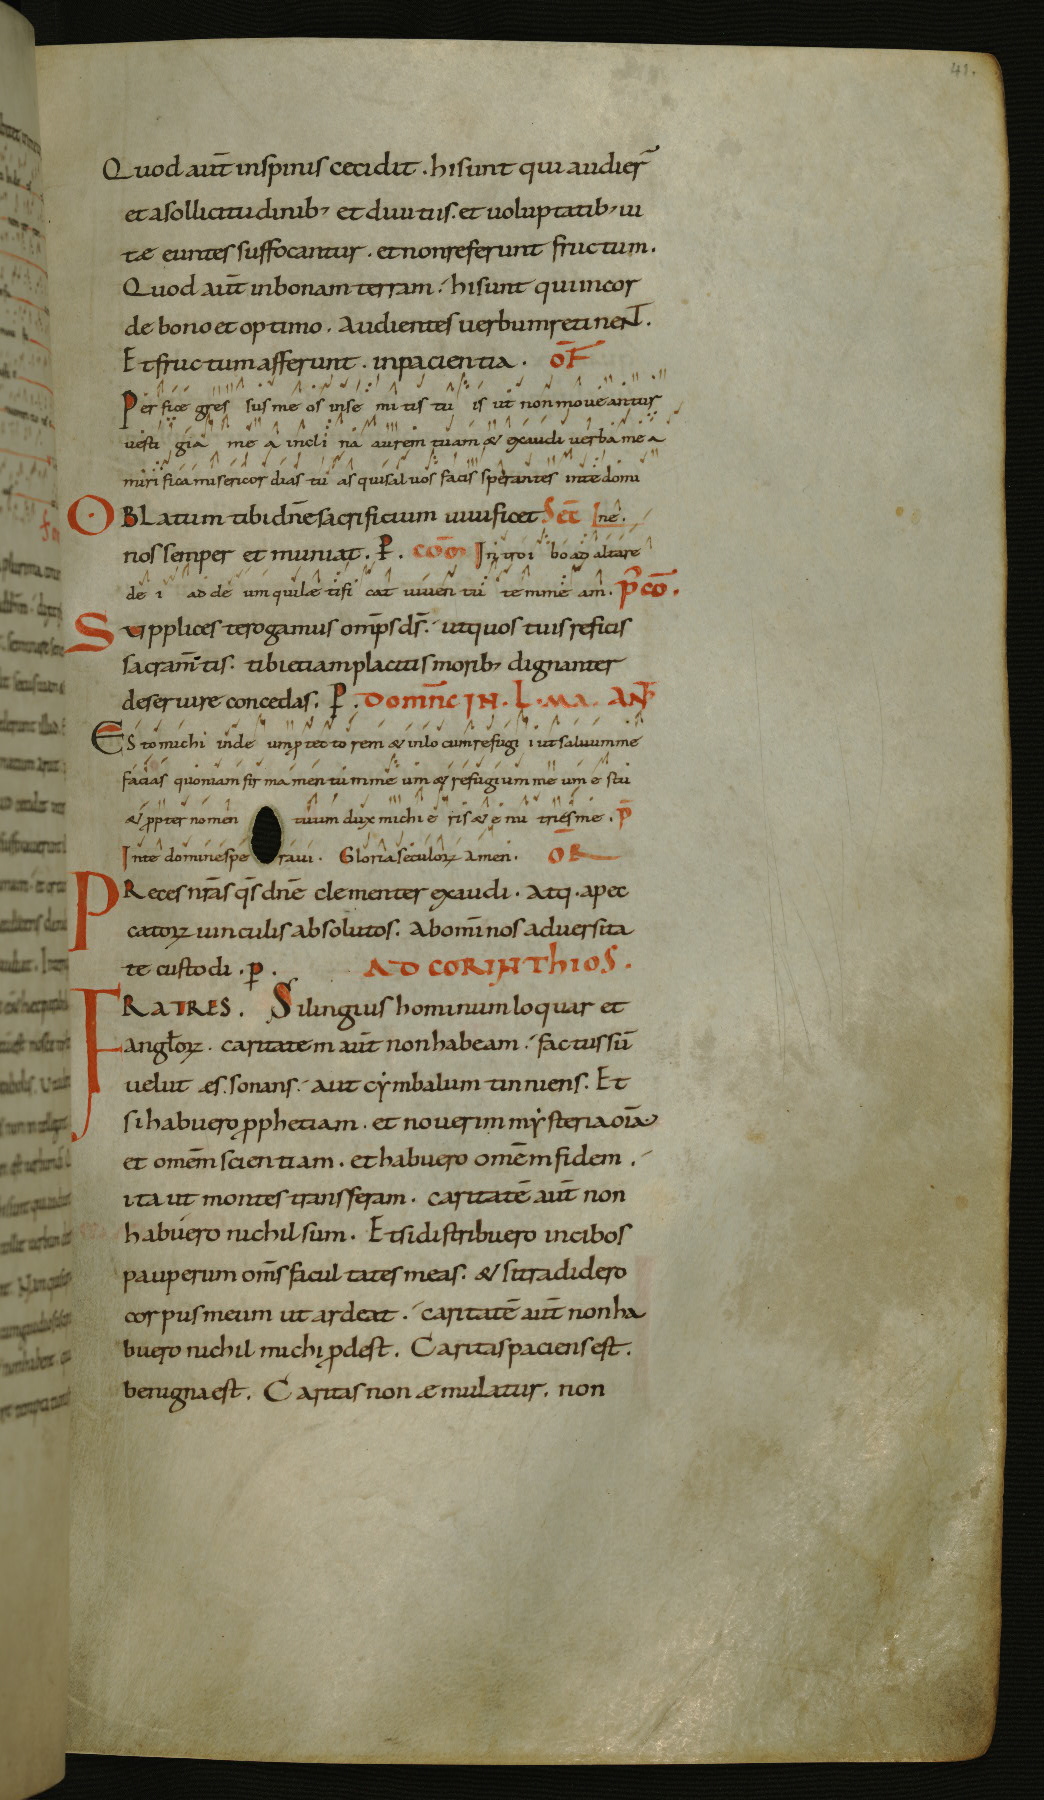 41.
Quod aut̄ inspinis cecidit . hi sunt qui audier̄
et asollicitudinib; et diuitiis. et uoluptatib; ui
tae euntes suffocantur . et non referunt fructum .
Quod aut̄ inbonam terram . hi sunt qui incor
de bono et optimo . Audientes uerbum retinent .
Et fructum afferunt . inpacientia . OF̄
Per fice gres sus me os inse mi tis tu is ut non moueantur
uesti gia me a incli na aurem tuam & exaudi uerba me a
miri fica misericor dias tu as qui saluos facis sperantes inte domi
OBLatum tibi dn̄e sacrificium uiuificet Sec̄ | ne .
nos semper et muniat . P . com̄ Introi bo ad altare
de i ad de um qui lae tifi cat iuuen tu tem me am . p̄ cō .
Supplices te rogamus omp̄s ds̄ . ut quos tuis reficis
sacram̄tis . tibi etiam placitis morib; dignanter
deseruire concedas . P . Domin̄c IN . L . MA . AN̄
Esto michi in de um p tec to rem & inlo cum refugi i ut saluum me
facias quoniam fir ma men tum me um & refugium me um e s tu
& ppter nomen tuum dux michi e ris & e nu tries me . p̄
Inte domine spe raui . Gloria seculoꝝ amen . OR̄
Preces nr̄as qs̄ dn̄e clementer exaudi . Atq . apec
catoꝝ uinculis absolutos . Abom̄i nos aduersita
te custodi . p . AD CORINTHIOS .
FRATRES . Si linguis hominum loquar et
angl̄oꝝ . caritatem aut̄ non habeam . factus sū
uelut aes . sonans . aut cymbalum tinniens . Et
si habuero pphetiam . et nouerim mysteria oīa
et omēm scientiam . et habuero omēm fidem .
ita ut montes transferam . caritatē aut̄ non
habuero nichil sum . Et si distribuero in cibos
pauperum om̄s facultates meas . & si tradidero
corpus meum ut ardeat . caritatē aut̄ non ha
buero nichil michi pdest . Caritas paciens est .
benigna est . Caritas non aemulatur . non